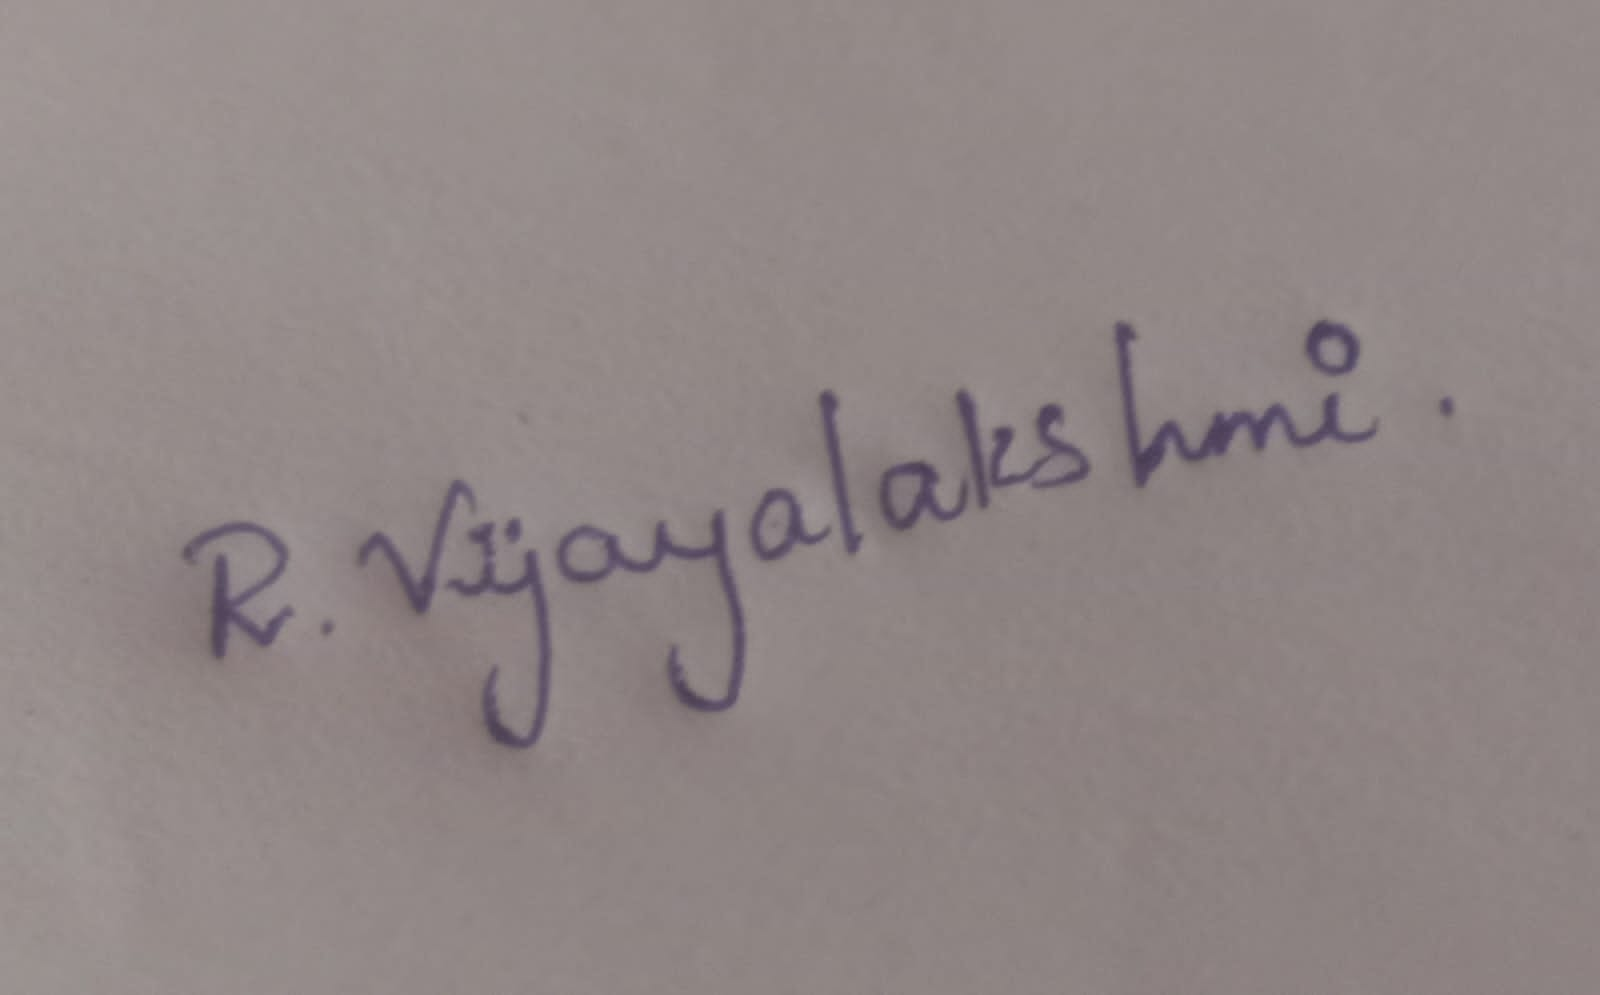 R. Vijayalakshmi.